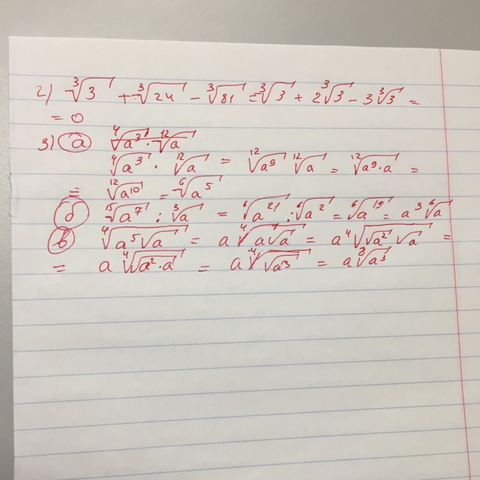 2) ∛3 + ∛24 − ∛81 = ∛3 + 2∛3 − 3∛3 =
= 0
3) а) ⁴√a³ · ¹²√a
⁴√a³ · ¹²√a = ¹²√a⁹ ¹²√a = ¹²√a⁹·a =
= ¹²√a¹⁰ = ⁶√a⁵
б) ¹⁵√a⁷ : ³√a = ⁶√a²¹ : ⁶√a² = ⁶√a¹⁹ = a³ ⁶√a
в) ⁴√(a⁵√a) = a ⁴√(a√a) = a ⁴√(√a² √a) =
= a ⁴√(√(a²·a)) = a ⁴√(√a³) = a ⁸√a³